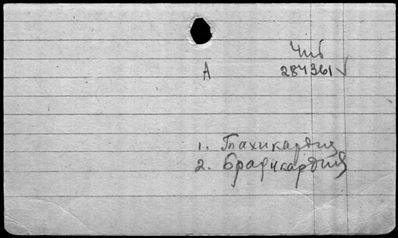 Чиб
А 284361 √
1. Тахикардия
2. Брадикардия